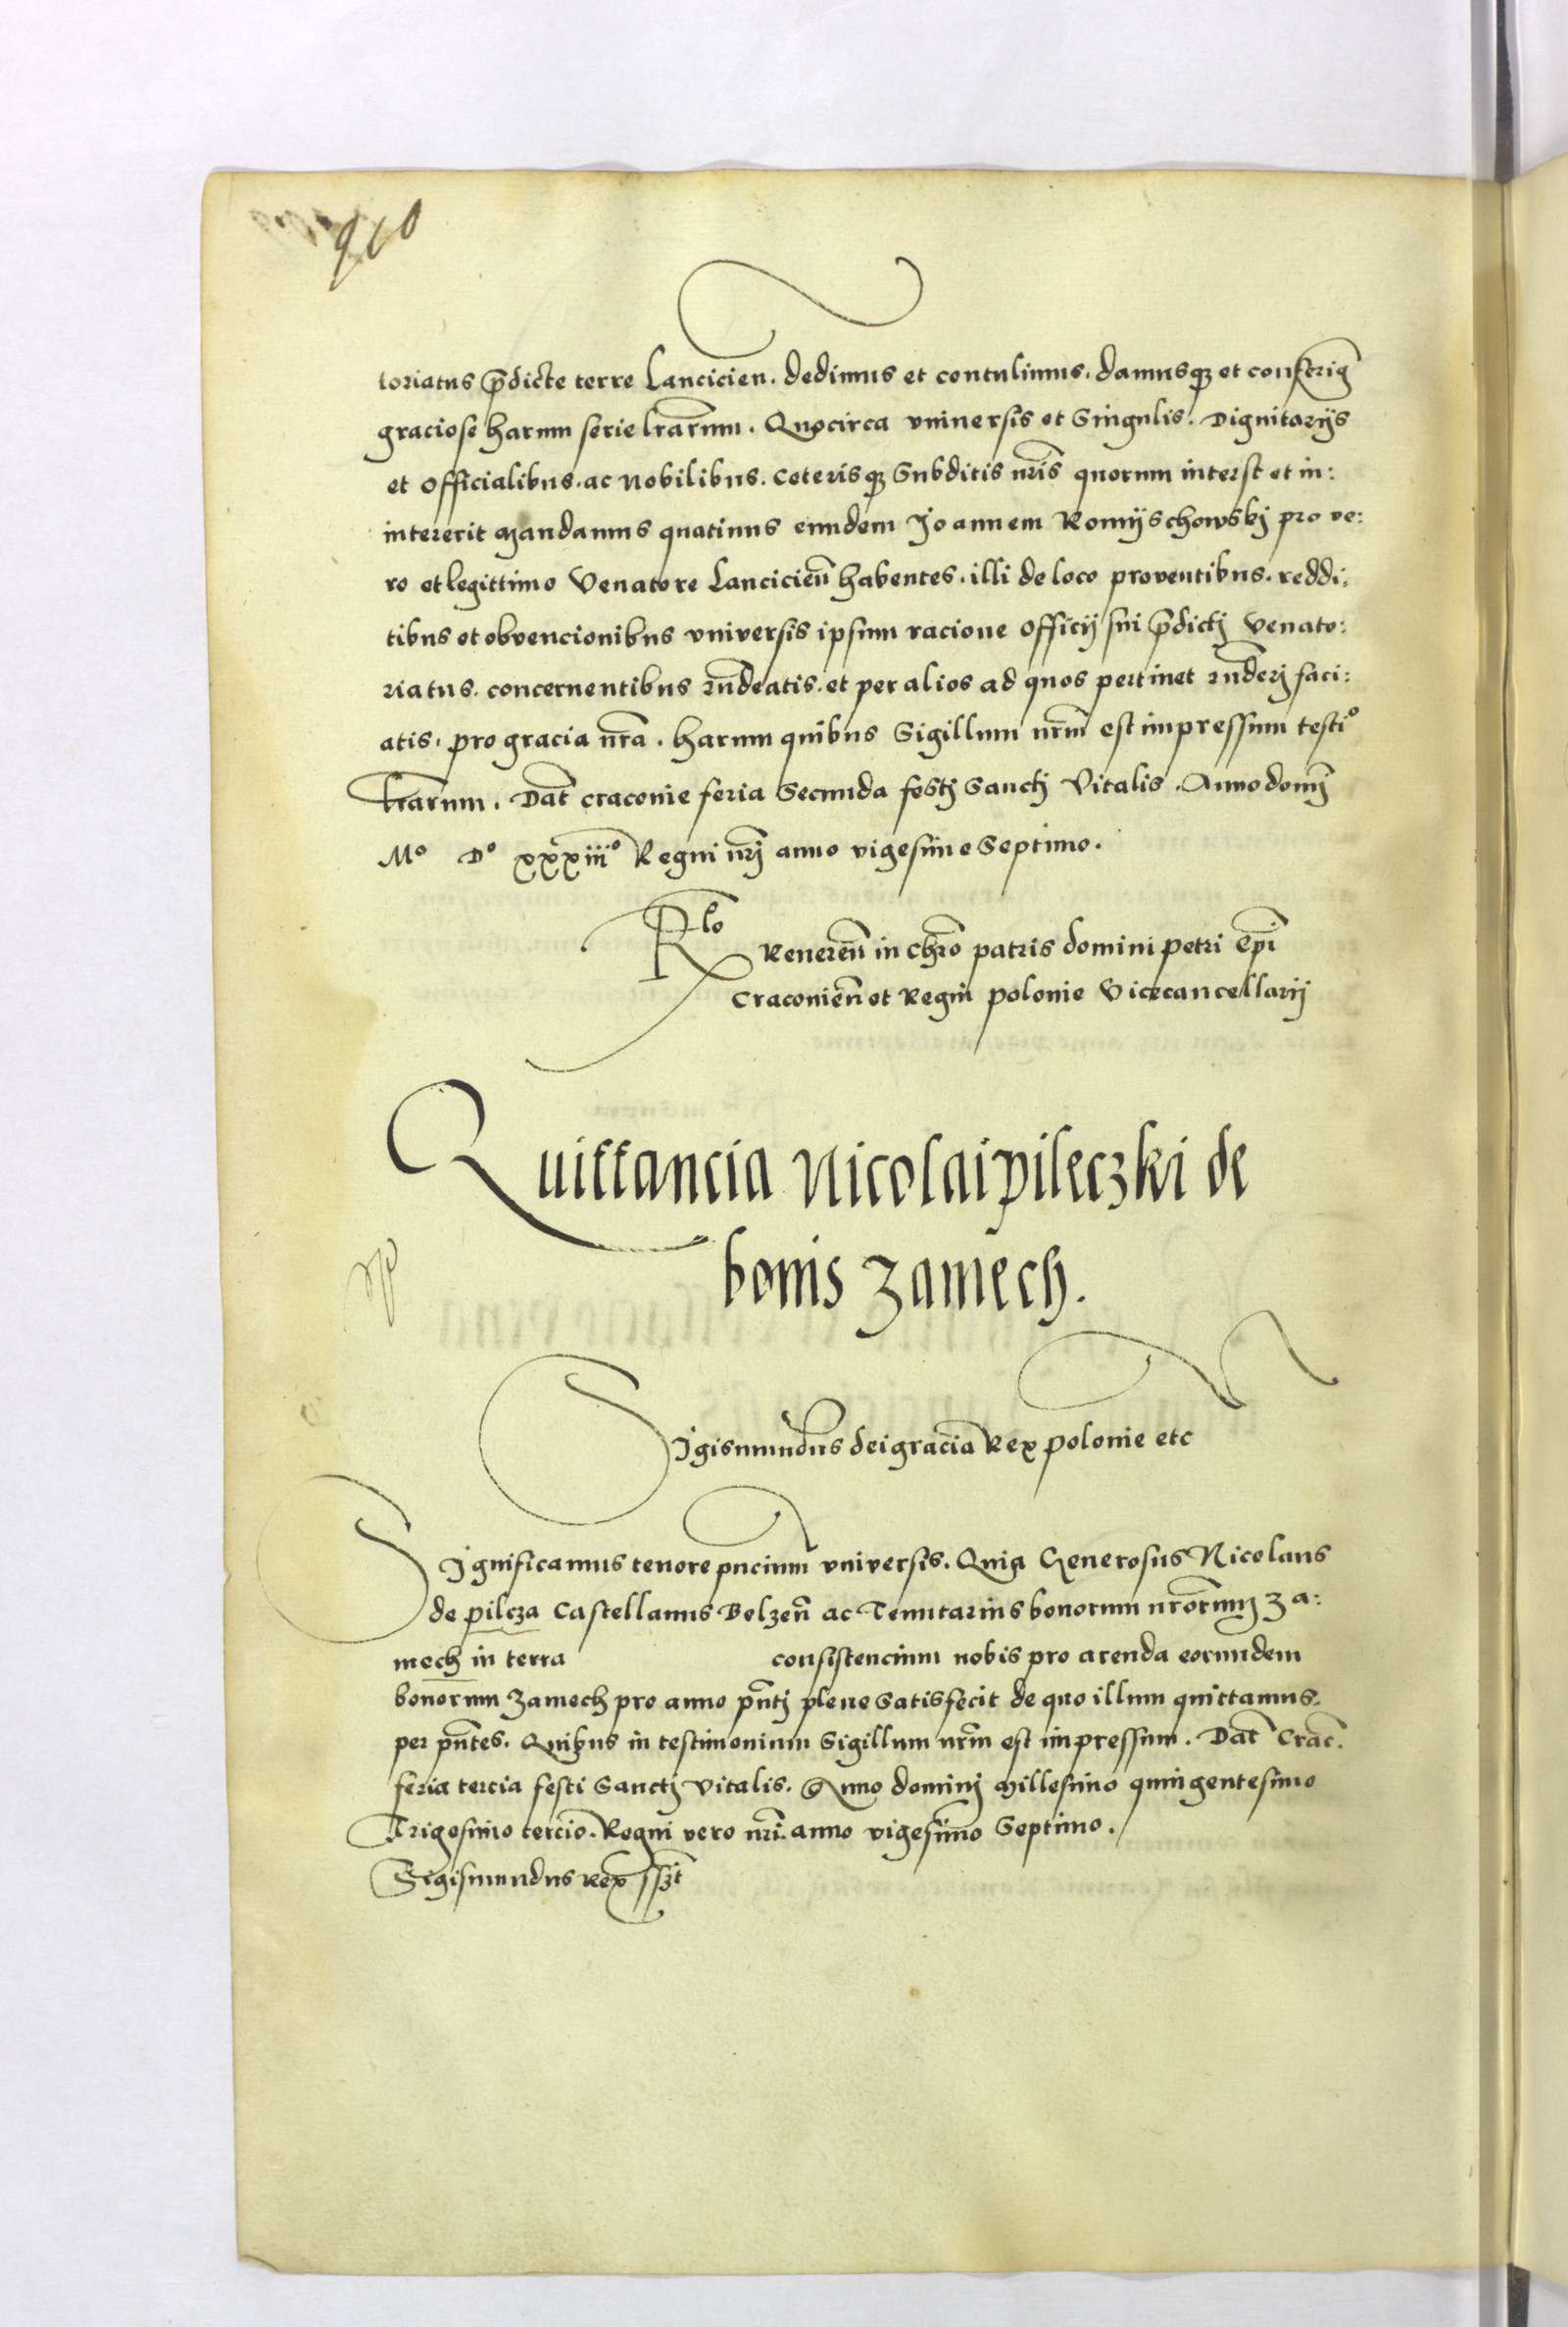 910
toriatus p̄dicte terre Lancicien. dedimus et contulimus. damusqz et conferim̄
graciose harum serie lrārum. Quocirca vniuersis et Singulis. Dignitarijs
et officialibus. ac Nobilibus. Ceterisqz Subditis nrīs quorum interest et in:
intererit Mandamus quatinus eundem Joannem Romijschowskj pro ve:
ro et legittimo Venatore Lancicieñ habentes. illi de loco proventibus. reddi:
tibus et obvencionibus vniversis ipsum racione officij sui p̄dictj Venato:
riatus. concernentibus rn̄deatis. et per alios ad quos pertinet rn̄derj faci:
atis. pro gracia nrā. harum quibus Sigillum nrm̄ est impressum testio
lrārum. Dat̄ Craconie feria Secunda festj Sanctj Vitalis. Anno domj̄
Mo Do xxxiiio Regni nrj̄ anno vigesimo Septimo.
Rlo
Reuereñ in chrō patris domini petri Epī
Craconieñ et Regni polonie Vicecancellarij
Quittancia Nicolai pileczki de
bonis Zamech.
Sigismundus dei gracia Rex polonie etc
Significamus tenore pncium̄ vniversis. Quia Generosus Nicolaus
de pilcza Castellanus Belzeñ ac Tenutarius bonorum nrōrum Za:
mech in terra consistencium nobis pro arenda eorundem
bonorum Zamech pro anno pn̄tj plene satisfecit de quo illum quittamus.
per pn̄tes. Quibus in testimonium Sigillum nrm̄ est impressum. Dat̄ Crac̄.
feria tercia festi Sanctj Vitalis. Anno dominj Millesimo quingentesimo
Trigesimo tercio. Regni vero nrī. anno vigesimo Septimo.
Sigismundus Rex sszt̄